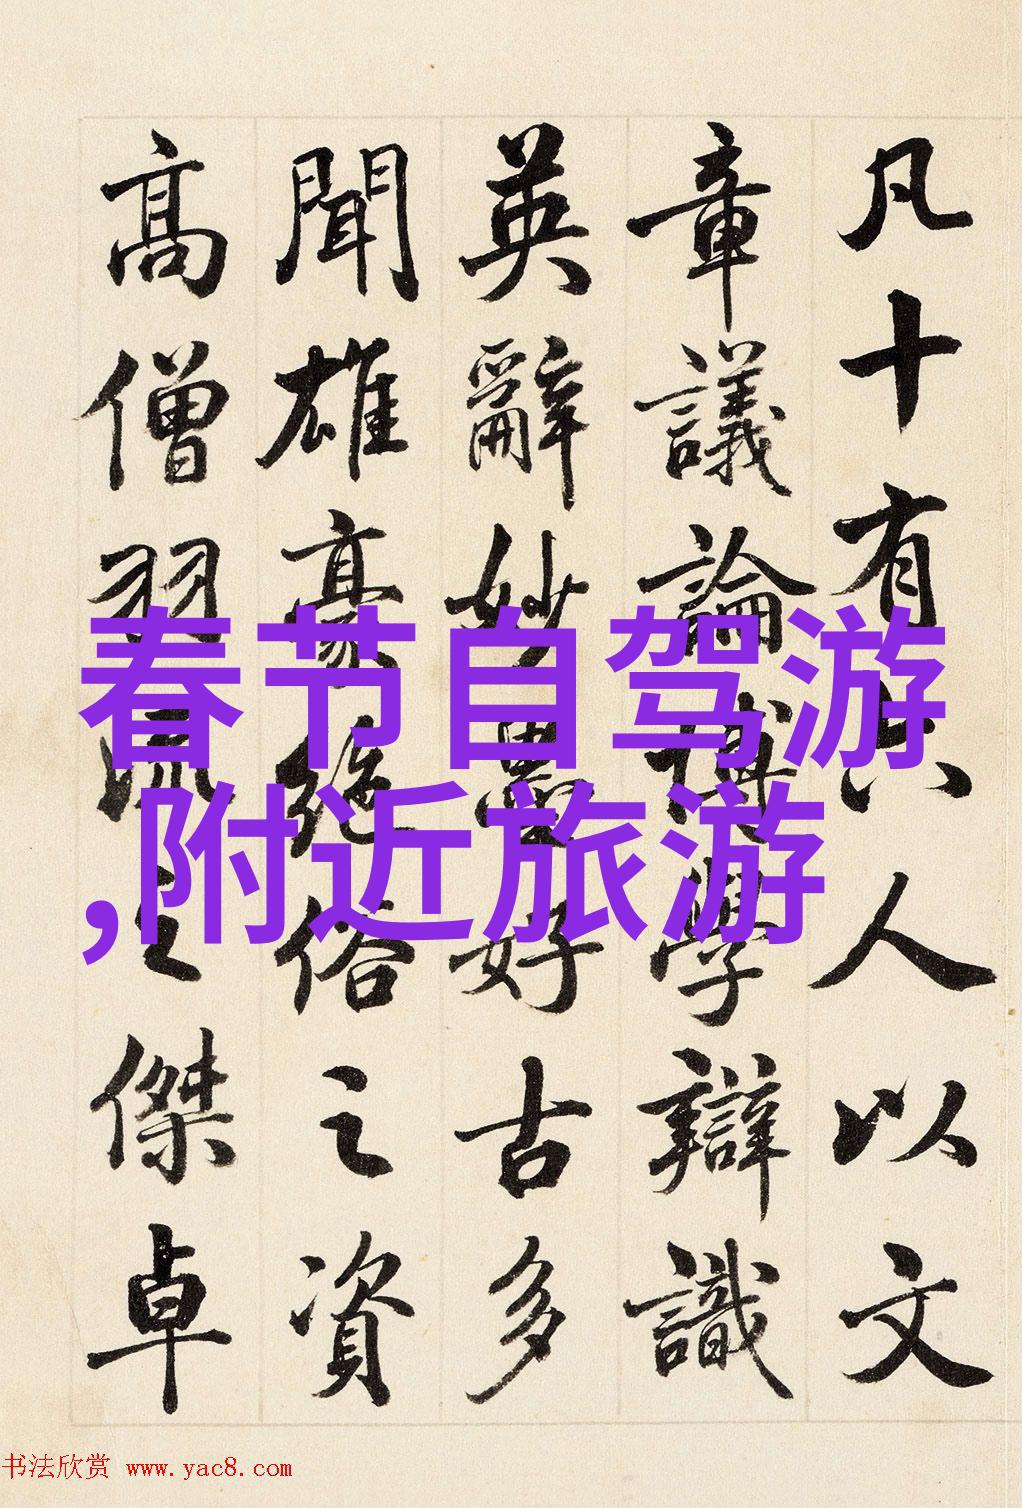 凡十有六人以文
章議論博學辯識
英辭妙墨好古多
聞雄豪絶俗之資
高僧羽流之傑卓
春节自驾游
,附近旅游
书法欣赏 www.yac8.com